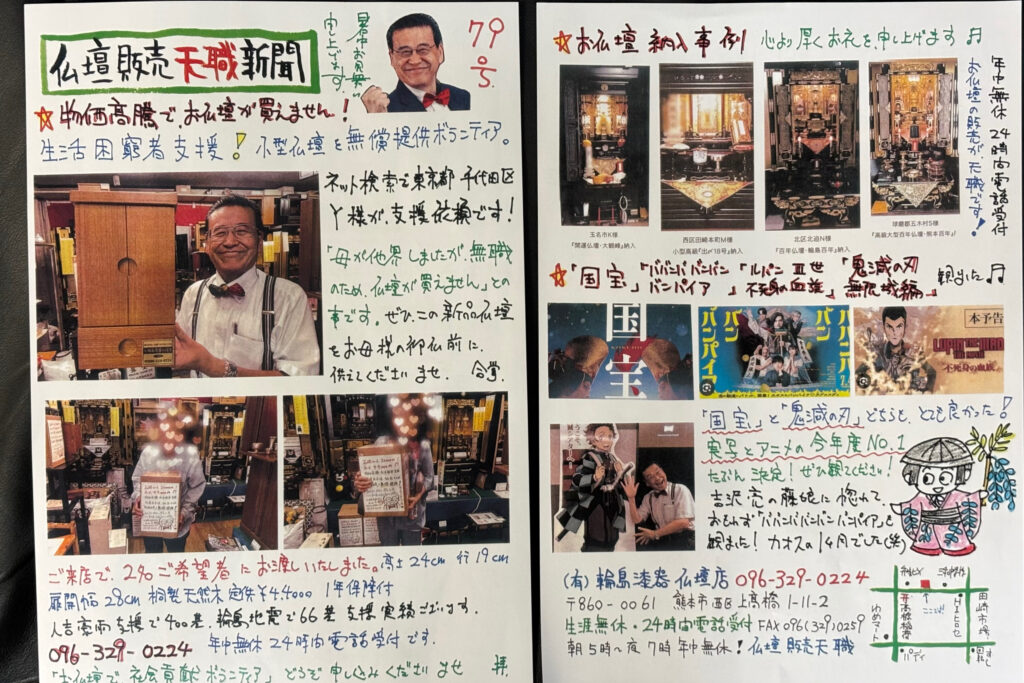 仏壇販売天職新聞
暑中お見舞い
申し上げます。
79
0.5
☆物価高騰で、お仏壇が買えません!
生活困窮者支援!小型仏壇を無償提供ボランティア。
ネット検索で東京都千代田区
Y様が支援依頼です!
「母が他界しましたが、無職
のため、仏壇が買えません」との
事です。ぜひ、この新品仏壇
をお母様の御仏前に、
供えてくださいませ。合掌。
ご来店で、2名ご希望者にお渡しいたしました。高さ24cm 行19cm
扉開幅28cm 桐製天然木 定価¥44000 1年保障付
人吉豪雨支援で400基、輪島地震で66基支援実績ございます。
096-329-0224 年中無休24時間電話受付です。
「お仏壇で社会貢献ボランティア」どうぞ申し込みくださいませ 拝.
☆お仏壇納入事例 心より厚くお礼を申し上げます♬
年中無休24時間電話受付
お仏壇の販売が、天職です!
玉名市K様
『開運仏壇・大観峰』納入
西区田崎本町M様
小型高級『出〆18号』納入
北区北迫N様
『百年仏壇・輪島百年』納入
球磨郡五木村S様
『高級大型百年仏壇・熊本百年』
☆「国宝」「ババンババンバン
バンパイア」「ルパンⅢ世
不死身の血族」「鬼滅の刃
無限城編」観ました♬
国宝
ババンババンバンバンパイア
本予告
LUPIN THE IIIRD
不死身の血族
「国宝」と「鬼滅の刃」どちらも、とても良かった!
実写とアニメの今年度NO.1
たぶん決定!ぜひ観てください!
吉沢亮の藤娘に惚れて
おもわず「ババンババンバンバンパイア」も
観ました!カオスの1ヶ月でした(笑)
(有)輪島漆器仏壇店 096-329-0224
〒860-0061 熊本市西区上高橋1-11-2
生涯無休・24時間電話受付 FAX096(329)0259
朝5時〜夜7時年中無休!仏壇販売天職
ここ!
高橋稲荷
ゆめマート
田崎市場